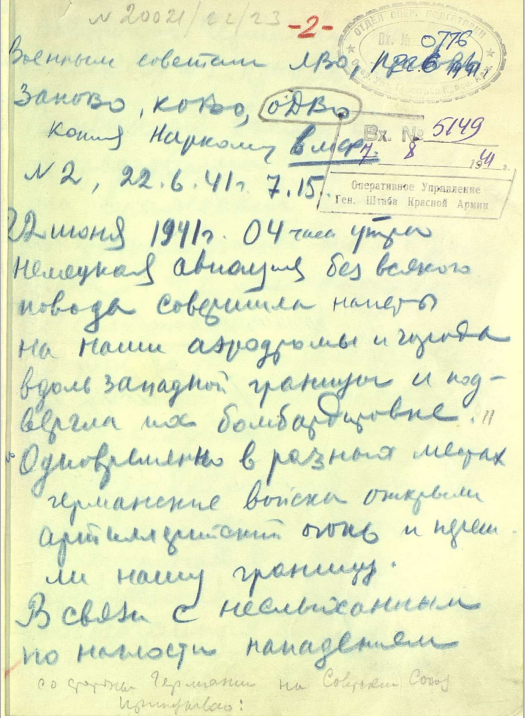 N 20021/22/23
-2-
ОТДЕЛ
Вх. №
0776
1941
Военным советам ЛВО, ПрибОВО,
ЗапОВО, КОВО, ОДВО
Вх. № 5149
7. 8 1941 г.
Оперативное Управление
Ген. Штаба Красной Армии
Копия Наркому в.м.ф.
N 2, 22.6.41г. 7.15
22 июня 1941г. 04 часа утра
немецкая авиация без всякого
повода совершила налеты
на наши аэродромы и города
вдоль западной границы и под-
вергла их бомбардировке.
Одновременно в разных местах
германские войска открыли
артиллерийский огонь и переш-
ли нашу границу.
В связи с неслыханным
по наглости нападением
со стороны Германии на Советский Союз
Приказываю: